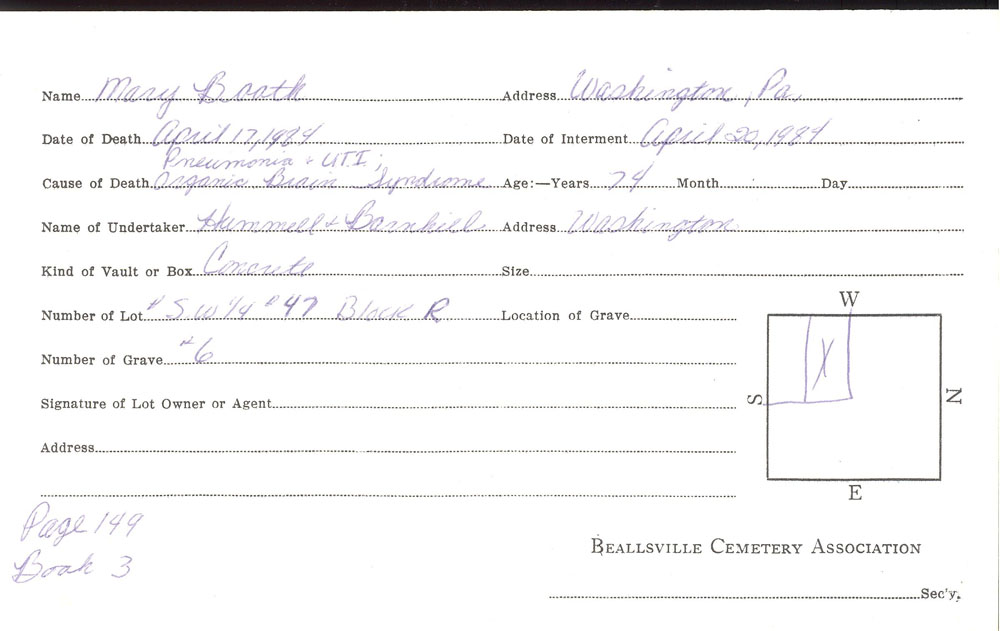 Name Mary Booth Address Washington, Pa.
Date of Death April 17, 1984 Date of Interment April 20, 1984
Pneumonia & UTI;
Cause of Death Organic Brain Syndrome Age:—Years 74 Month Day
Name of Undertaker Hummell & Barnhill Address Washington
Kind of Vault or Box Concrete Size
Number of Lot # SW 1/4 # 47 Block R Location of Grave
W
Number of Grave #6
X
Signature of Lot Owner or Agent
S N
Address
E
Page 149
Book 3
BEALLSVILLE CEMETERY ASSOCIATION
Sec'y.